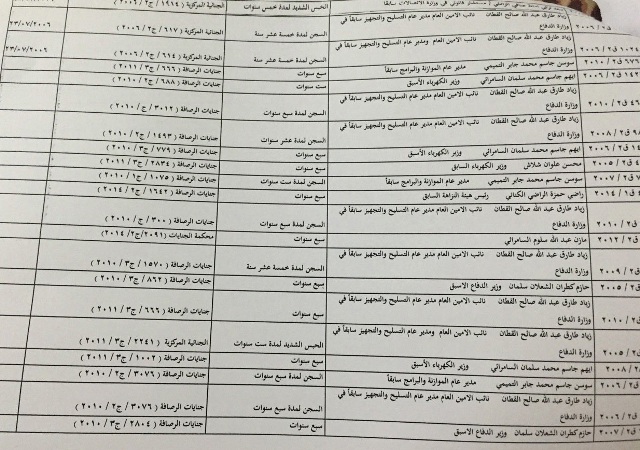 الحبس الشديد لمدة خمس سنوات الجنائية المركزية ( ١٩١٤ / ج٢ / ٢٠٠٦ )
زياد طارق عبد الله صالح القطان نائب الامين العام مدير عام التسليح والتجهيز سابقاً في
وزارة الدفاع السجن لمدة خمسة عشر سنة الجنائية المركزية ( ٦١٧ / ج٢ / ٢٠٠٦ ) ٢٣/٠٧/٢٠٠٦
زياد طارق عبد الله صالح القطان نائب الامين العام ومدير عام التسليح والتجهيز سابقاً في
وزارة الدفاع السجن لمدة خمسة عشر سنة الجنائية المركزية ( ٦١٤ / ج٢ / ٢٠٠٦ ) ٢٣/٠٧/٢٠٠٦
سوسن جاسم محمد جابر التميمي مدير عام الموازنة والبرامج سابقاً سبع سنوات جنايات الرصافة ( ٦٦٦ / ج٣ / ٢٠١١ )
ايهم جاسم محمد سلمان السامرائي وزير الكهرباء الأسبق ست سنوات جنايات الرصافة ( ٦٨٨ / ج٢ / ٢٠١٠ )
زياد طارق عبد الله صالح القطان نائب الامين العام مدير عام التسليح والتجهيز سابقاً في
وزارة الدفاع السجن لمدة سبع سنوات جنايات الرصافة ( ٣٠١٢ / ج٢ / ٢٠١٠ )
زياد طارق عبد الله صالح القطان نائب الامين العام مدير عام التسليح والتجهيز سابقاً في
وزارة الدفاع السجن لمدة عشر سنوات جنايات الرصافة ( ١٤٩٣ / ج٢ / ٢٠١٠ )
ايهم جاسم محمد سلمان السامرائي وزير الكهرباء الأسبق سبع سنوات جنايات الرصافة ( ٧٧٩ / ج٣ / ٢٠١٠ )
محسن علوان شلاش وزير الكهرباء السابق سبع سنوات جنايات الرصافة ( ٢٨٣٤ / ج٣ / ٢٠١١ )
سوسن جاسم محمد جابر التميمي مدير عام الموازنة والبرامج سابقاً السجن لمدة ست سنوات جنايات الرصافة ( ١٠٧٥ / ج١ / ٢٠١٠ )
راضي حمزة الراضي الكناني رئيس هيئة النزاهة السابق سبع سنوات جنايات الرصافة ( ١٦٤٢ / ج٢ / ٢٠١٤ )
زياد طارق عبد الله صالح القطان نائب الامين العام مدير عام التسليح والتجهيز سابقاً في
وزارة الدفاع السجن لمدة سبع سنوات جنايات الرصافة ( ٣٠٠ / ج٢ / ٢٠١٠ )
مازن عبد الله سلوم السامرائي سبع سنوات محكمة الجنايات (٢٠٩١/ج٢/ ٢٠١٤)
زياد طارق عبد الله صالح القطان نائب الامين العام مدير عام التسليح والتجهيز سابقاً في
وزارة الدفاع السجن لمدة خمسة عشر سنة جنايات الرصافة ( ١٥٧٠ / ج٣ / ٢٠١٠ )
حازم كطران الشعلان سلمان وزير الدفاع الاسبق سبع سنوات جنايات الرصافة ( ٨٦٢ / ج٣ / ٢٠١٠ )
زياد طارق عبد الله صالح القطان نائب الامين العام مدير عام التسليح والتجهيز سابقاً في
وزارة الدفاع سبع سنوات جنايات الرصافة ( ٦٦٦ / ج٣ / ٢٠١١ )
زياد طارق عبد الله صالح القطان نائب الامين العام ومدير عام التسليح والتجهيز سابقاً في
وزارة الدفاع الحبس الشديد لمدة ست سنوات الجنائية المركزية ( ٢٢٤١ / ج٣ / ٢٠١١ )
ايهم جاسم محمد سلمان السامرائي وزير الكهرباء الأسبق سبع سنوات جنايات الرصافة ( ١٠٠٢ / ج٣ / ٢٠١١ )
سوسن جاسم محمد جابر التميمي مدير عام الموازنة والبرامج سابقاً السجن لمدة سبع سنوات جنايات الرصافة ( ٣٠٧٦ / ج٢ / ٢٠١٠ )
زياد طارق عبد الله صالح القطان نائب الامين العام مدير عام التسليح والتجهيز سابقاً في
وزارة الدفاع السجن لمدة سبع سنوات جنايات الرصافة ( ٣٠٧٦ / ج٢ / ٢٠١٠ )
حازم كطران الشعلان سلمان وزير الدفاع الاسبق سبع سنوات جنايات الرصافة ( ٢٨٠٤ / ج٣ / ٢٠١٠ )